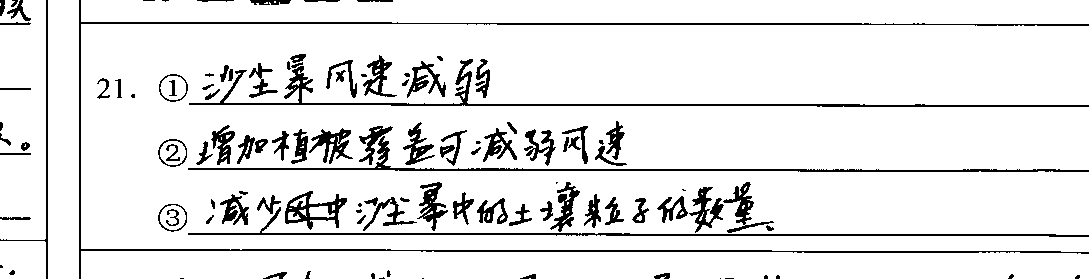 21. ①沙尘暴风速减弱
②增加植被覆盖可减弱风速
③减少沙尘暴中的土壤粒子的数量、